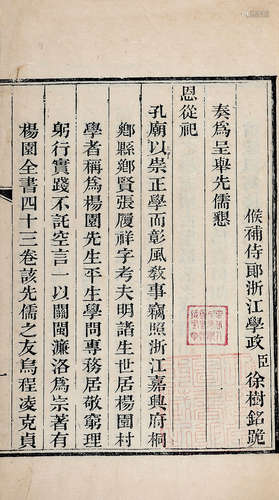 候補侍郞浙江學政臣徐樹銘跪
奏爲呈舉先儒懇
恩從祀
孔廟以崇正學而彰風敎事竊照浙江嘉興府桐
鄕縣鄕賢張履祥字考夫明諸生世居楊園村
學者稱爲楊園先生平生學問專務居敬窮理
躬行實踐不託空言一以關閩濂洛爲宗著有
楊園全書四十三卷該先儒之友烏程凌克貞